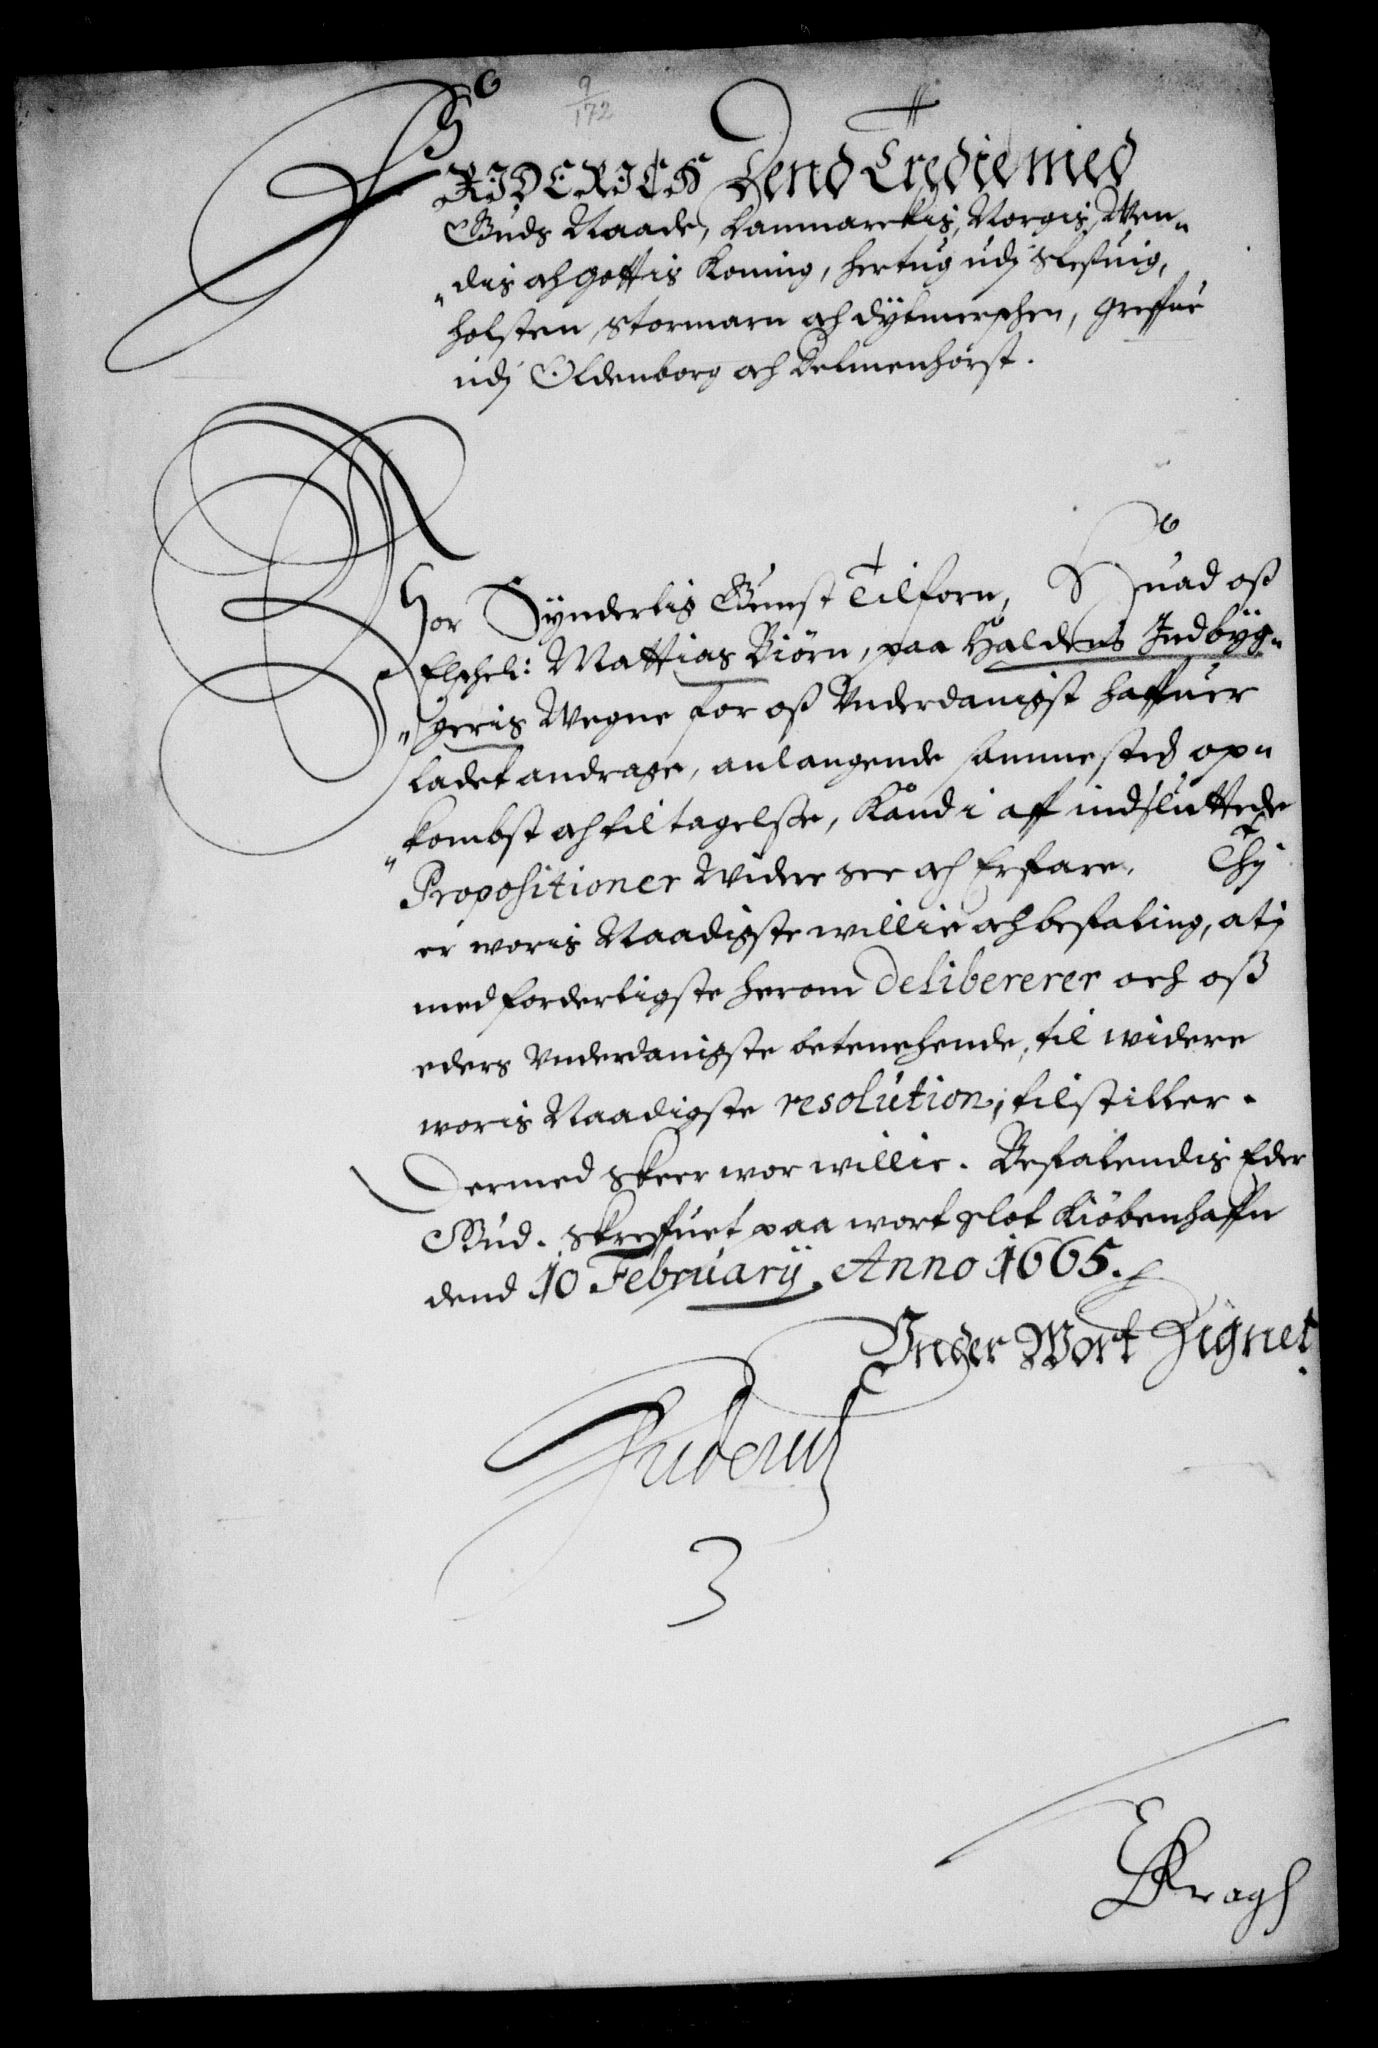 9
172
FRIDERICH Dend Tredie med
Guds Naade, Danmarckis, Norgis, Wen„
„dis och Gottis Koning, Hertug udj Slesuig,
Holsten, Stormarn och Dytmerschen, Greffue
udj Oldenborg och Delmenhorst.
Wor Synderlig Gunst Tilforn, Huad oß
Elschel: Mattias Biörn, paa Haldens Indbyg„
„geris Wegne for oß Vnderdanigst haffuer
ladet andrage, anlangende sammesteds op„
„kombst och tiltagelße, Kand i aff indsluttede
Propositioner widere see och Erfare. Thj
er woris Naadigste willie och befaling, at j
med forderligste herom delibererer och oß
eders Vnderdanigste betenchende, til widere
woris Naadigste resolution, tilstiller.
Dermed skeer wor willie. Befalendis Eder
Gud. Skreffuet paa wort slot Kiöbenhaffn
dend 10 Februarij. Anno 1665.
Under Wort Zignet.
Friderich
3
EKragh